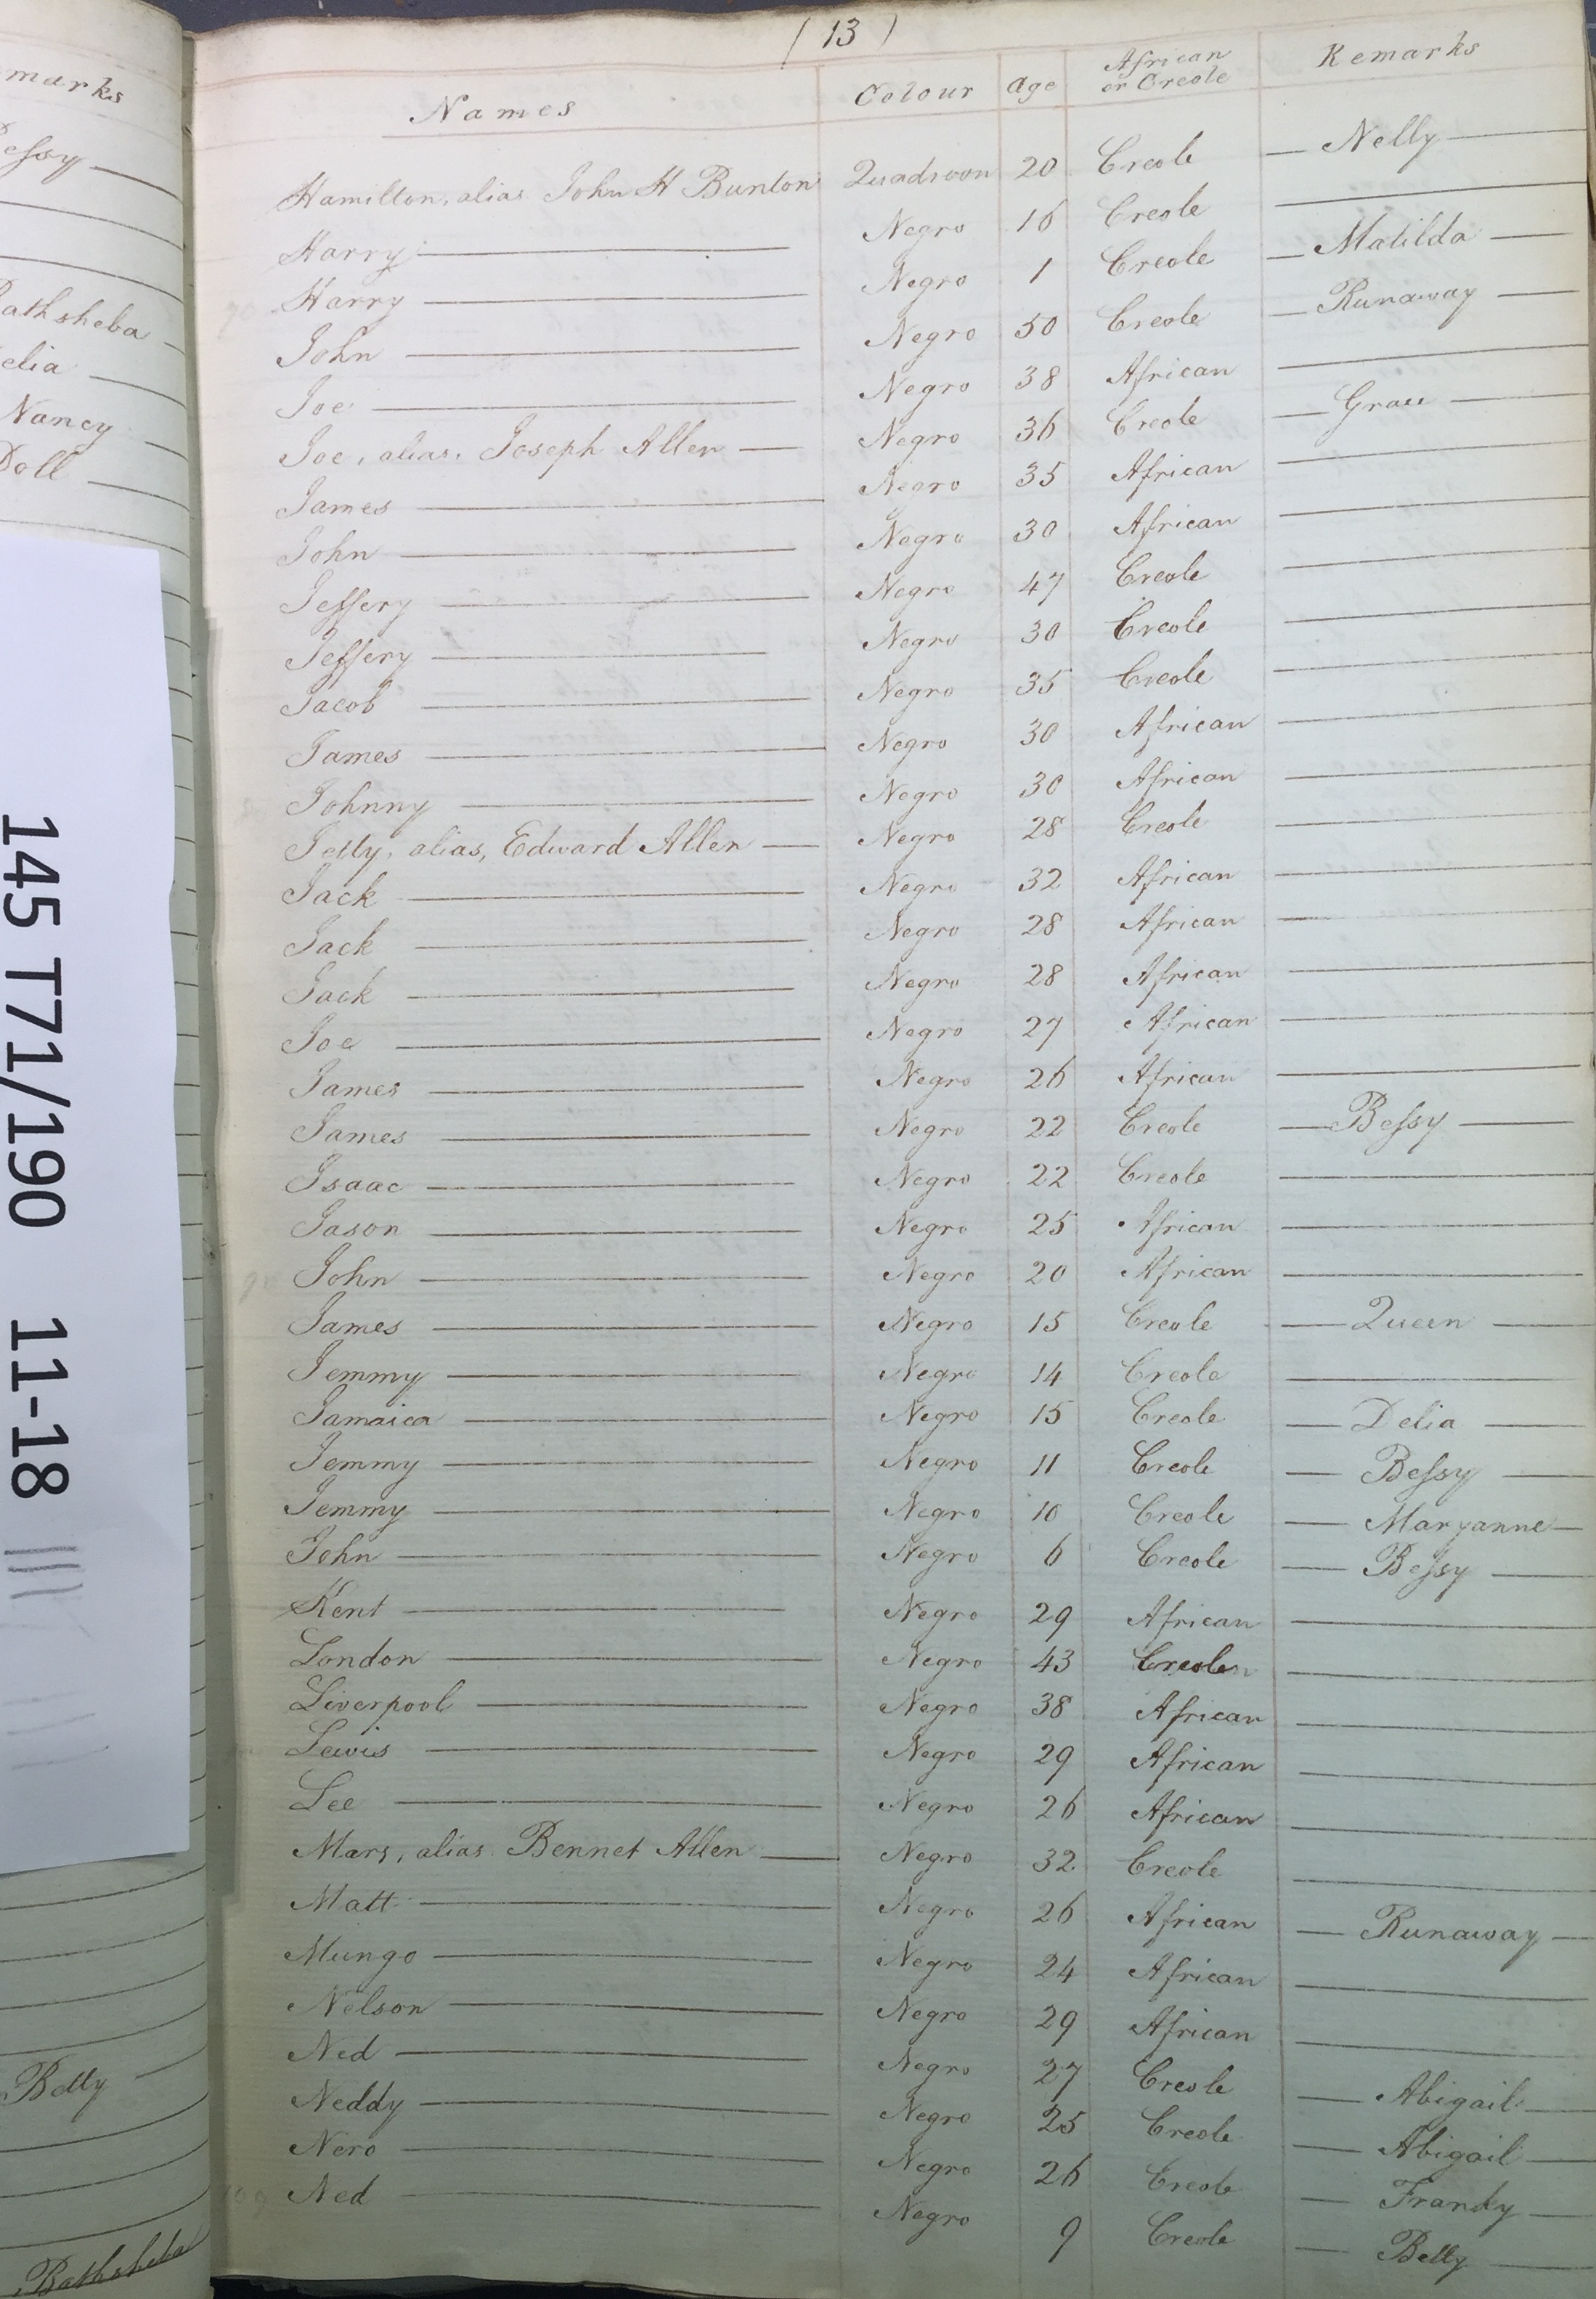 ( 13 )
Names Colour Age African or Creole Remarks
Hamilton, alias John H Bunton Quadroon 20 Creole — Nelly —
Harry — Negro 16 Creole —
Harry — Negro 1 Creole — Matilda —
John — Negro 50 Creole — Runaway —
Joe — Negro 38 African —
Joe, alias, Joseph Allen — Negro 36 Creole — Grace —
James — Negro 35 African —
John — Negro 30 African —
Jeffery — Negro 47 Creole —
Jeffery — Negro 30 Creole —
Jacob — Negro 35 Creole —
James — Negro 30 African —
Johnny — Negro 30 African —
Jelly, alias, Edward Allen — Negro 28 Creole —
Jack — Negro 32 African —
Jack — Negro 28 African —
Jack — Negro 28 African —
Joe — Negro 27 African —
James — Negro 26 African —
James — Negro 22 Creole — Bessy —
Isaac — Negro 22 Creole —
Jason — Negro 25 African —
John — Negro 20 African —
James — Negro 15 Creole — Queen —
Jemmy — Negro 14 Creole —
Jamaica — Negro 15 Creole — Delia —
Jemmy — Negro 11 Creole — Bessy —
Jemmy — Negro 10 Creole — Maryanne —
John — Negro 6 Creole — Bessy —
Kent — Negro 29 African —
London — Negro 43 Creole —
Liverpool — Negro 38 African —
Lewis — Negro 29 African —
Lee — Negro 26 African —
Mars, alias Bennet Allen — Negro 32 Creole —
Matt — Negro 26 African — Runaway —
Mungo — Negro 24 African —
Nelson — Negro 29 African —
Ned — Negro 27 Creole — Abigail —
Neddy — Negro 25 Creole — Abigail —
Nero — Negro 26 Creole — Franky —
Ned — Negro 9 Creole — Betty —
marks
Bessy —
Bathsheba —
elia —
Nancy —
Doll —
Betty —
Bathsheba
145 T71/190 11-18